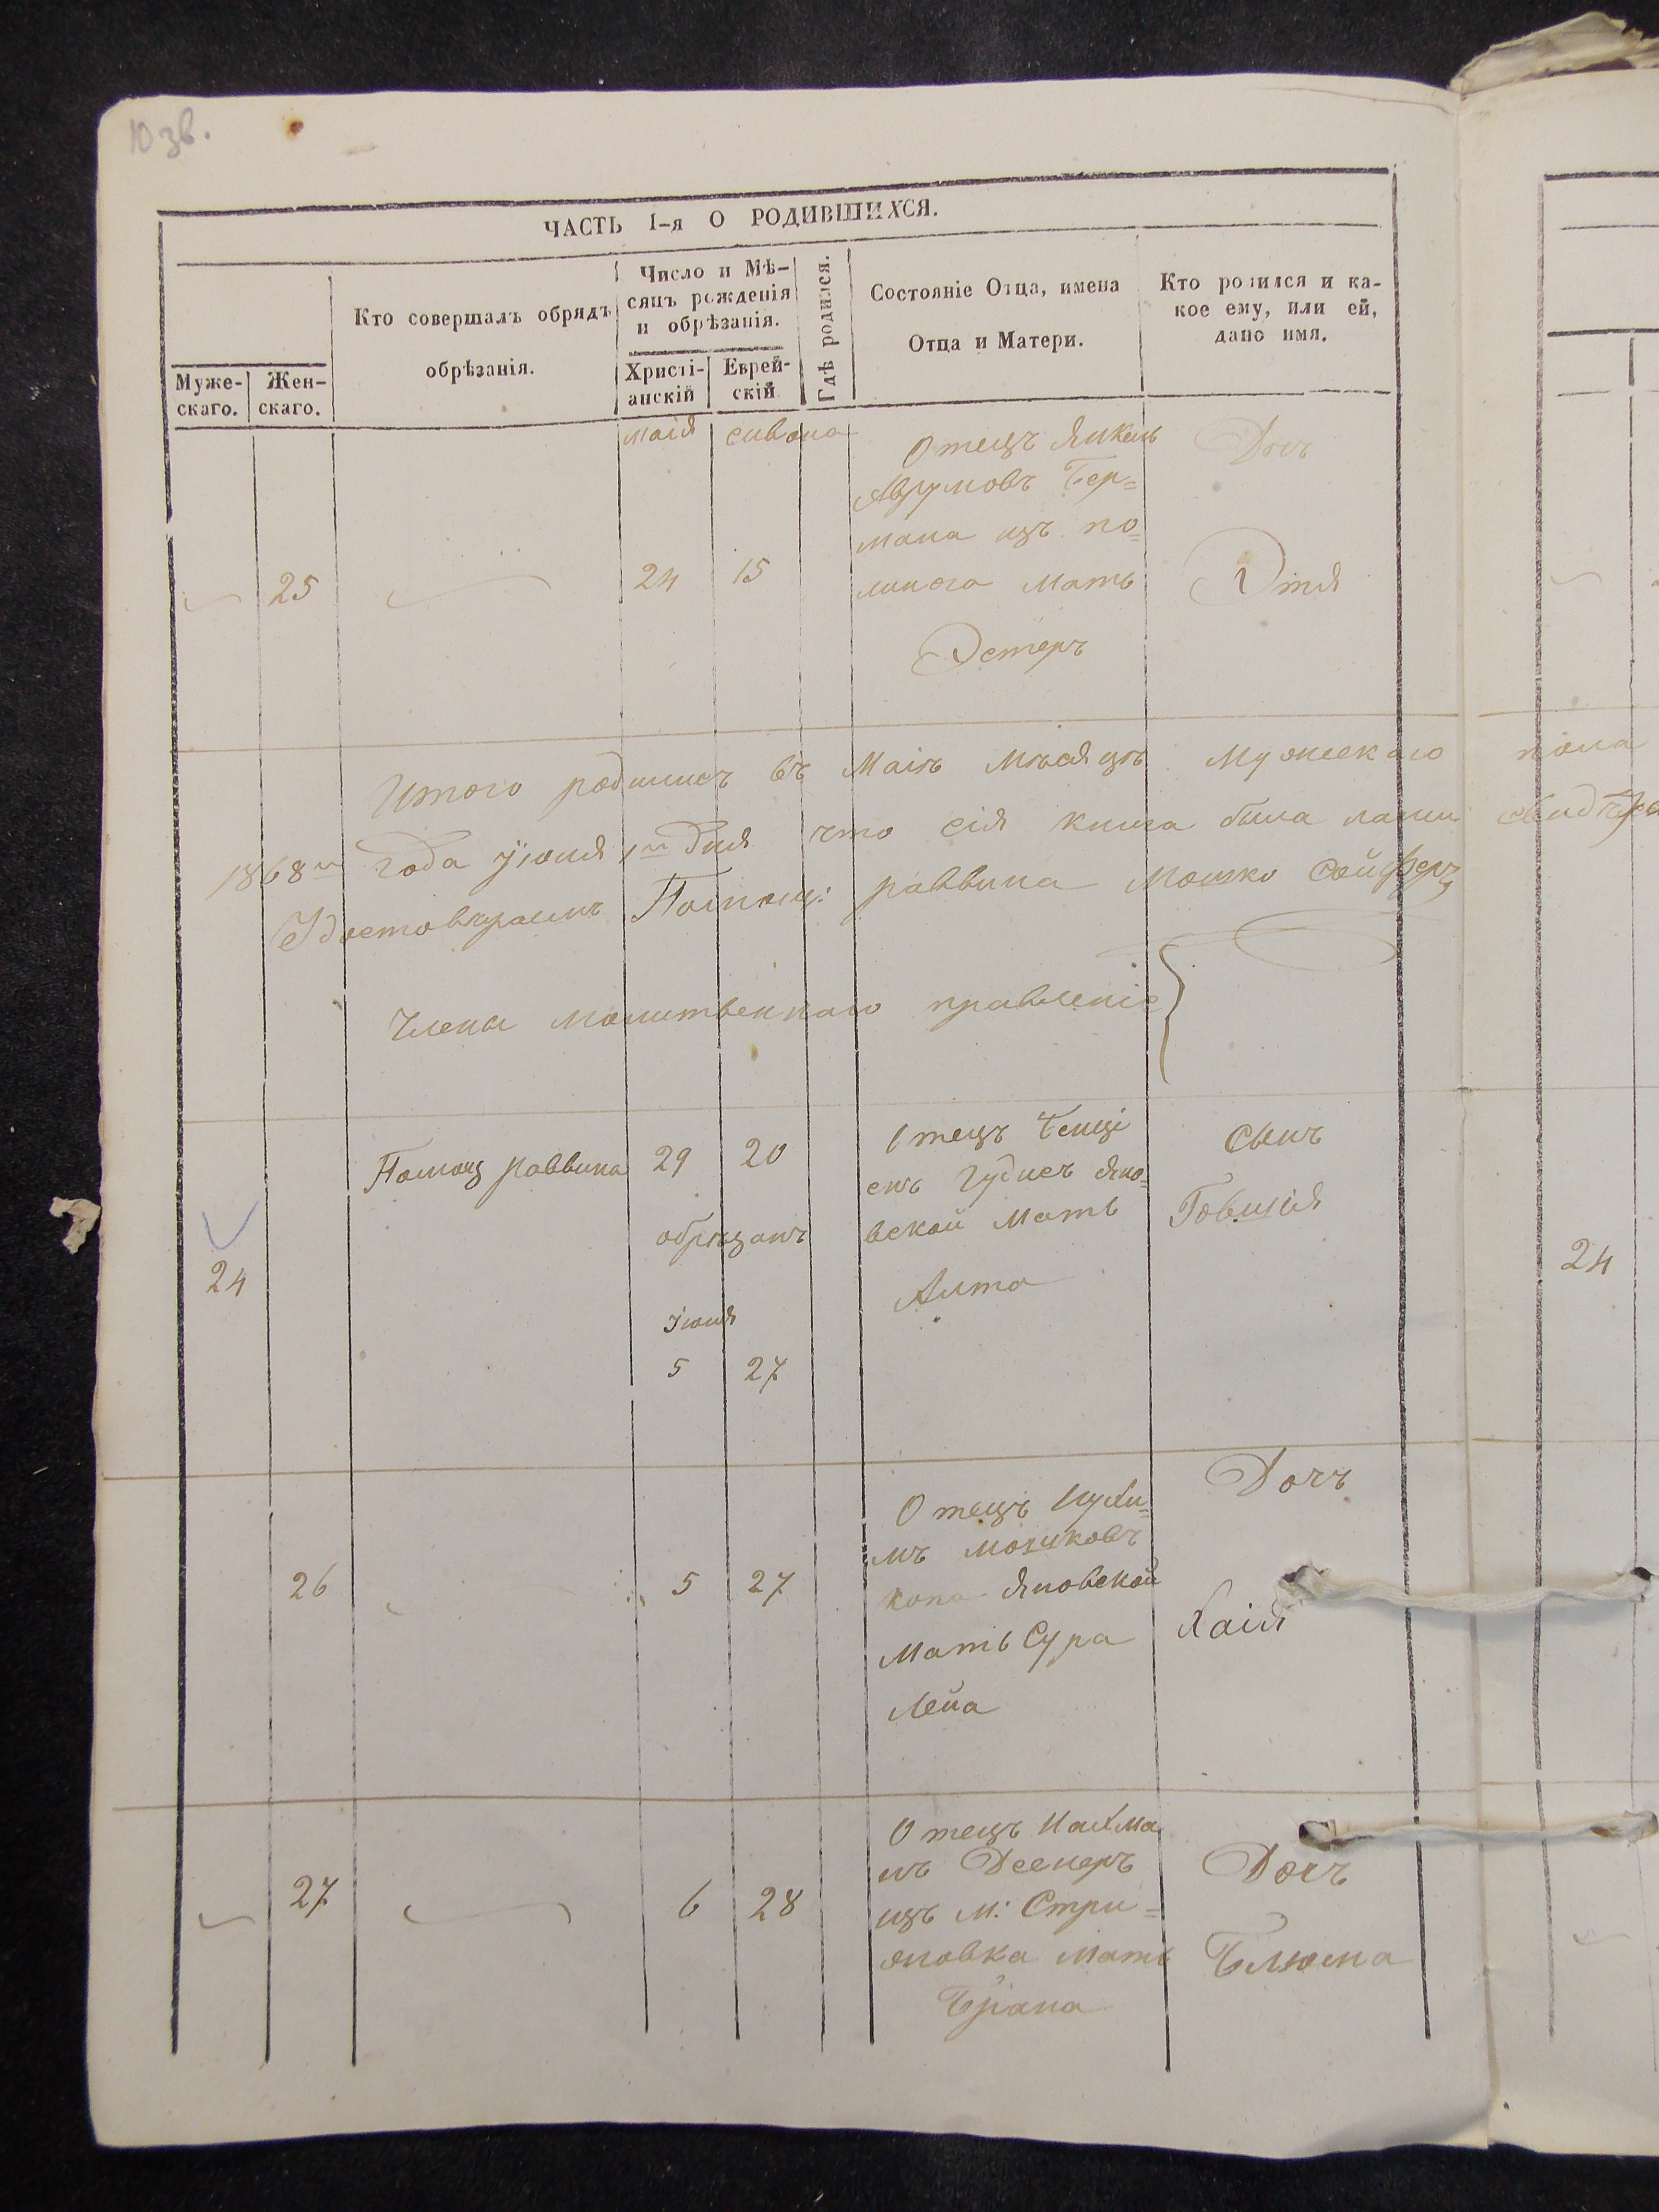 10 зв.
ЧАСТЬ I-я О РОДИВШИХСЯ.
Муже-
скаго.
Жен-
скаго.
Кто совершалъ обрядъ
обрѣзанія.
Число и Мѣ-
сяцъ рожденія
и обрѣзанія.
Христі-
анскій
Еврей-
скій
Гдѣ родился.
Состояніе Отца, имена
Отца и Матери.
Кто родился и ка-
кое ему, или ей,
дано имя.
маія сивана
25
24 15
Отецъ Янкель
Аврумовъ Бер=
мана изъ по=
мать
Эстеръ
Доч
Этя
Итого родилис въ Маіѣ Мѣсяцѣ Мужескаго пола
1868 года Іюня 1 дня что сія книга была нами
раввина Мошко Сойферъ
Члены молитвеннаго правленіе
24
Помощ раввина
29 20
обрѣзанъ
Іюня
5 27
Отецъ
Яно=
вской Мать
Сынъ
Товшія
24
26
5 27
Отецъ Нухи=
мъ мошковъ
Яновской
Мать Сура
Лейа
Дочъ
Хаія
27
6 28
Отецъ Нахма
нъ
изъ м: Стри=
жовка мать
Брана
Дочъ
Блюма